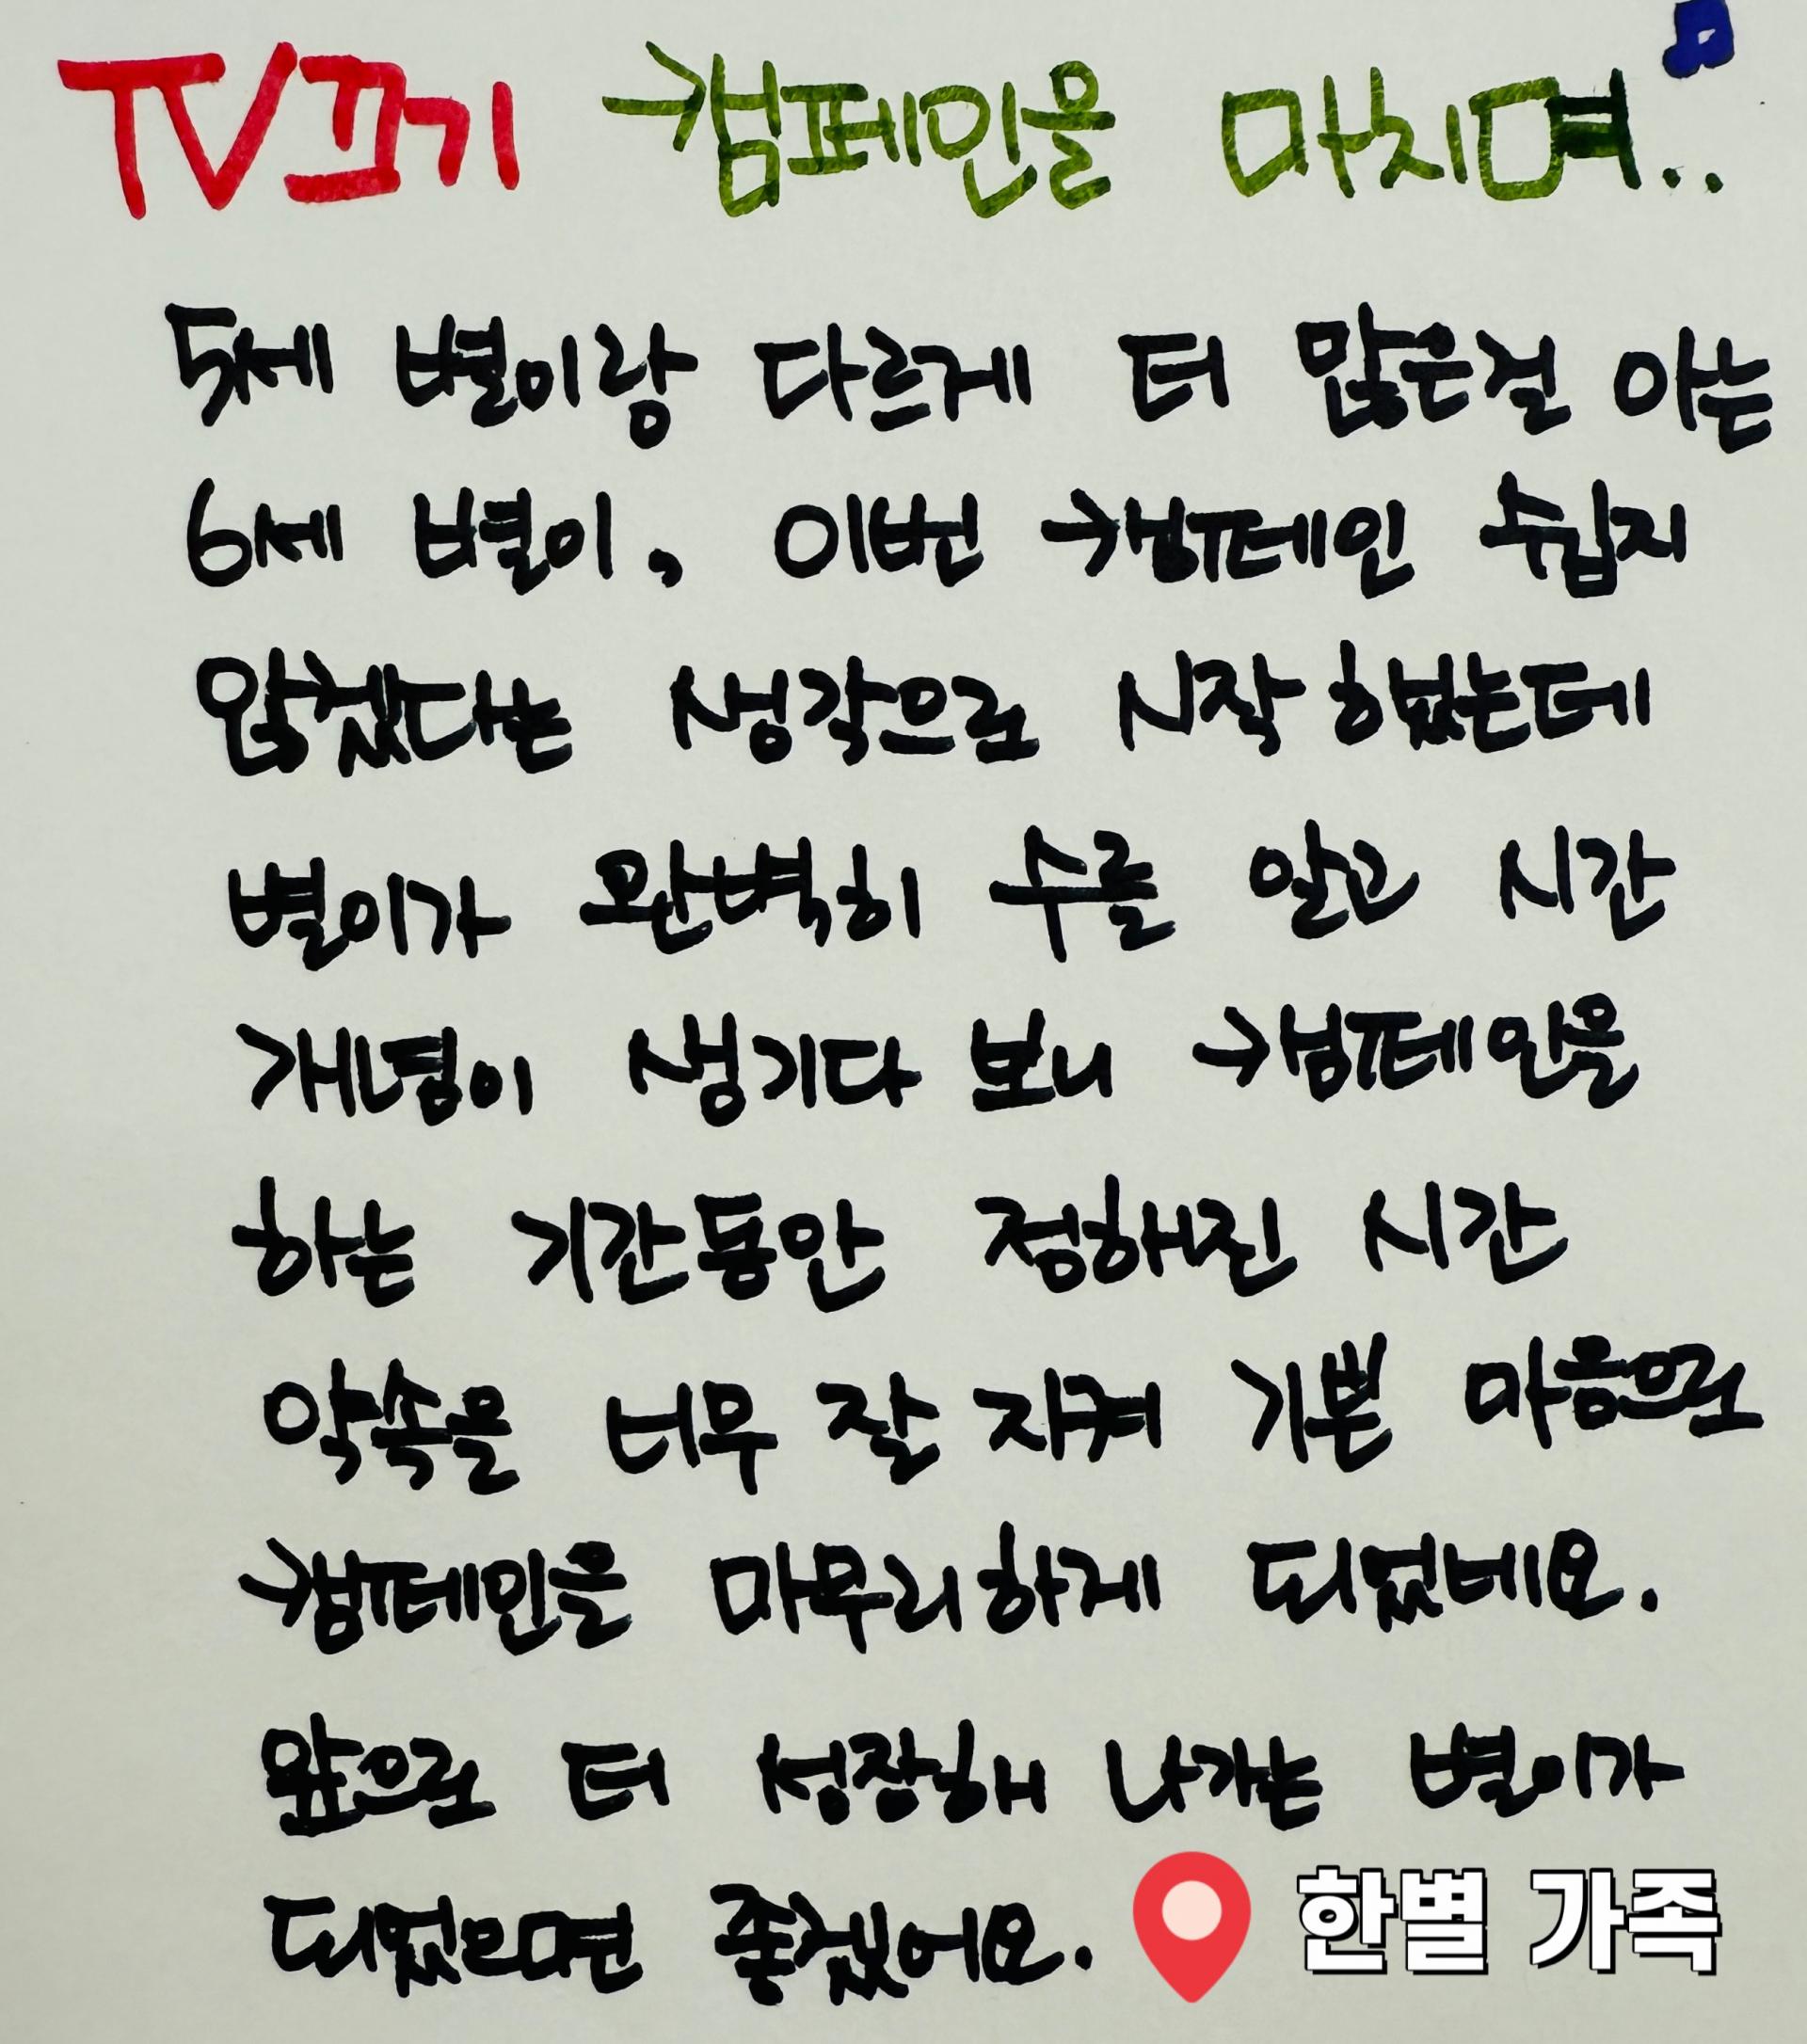 TV끄기 캠페인을 마치며..
5세 별이랑 다르게 더 많은걸 아는
6세 별이, 이번 캠페인 쉽지
않겠다는 생각으로 시작 했는데
별이가 완벽히 수를 알고 시간
개념이 생기다 보니 캠페인을
하는 기간동안 정해진 시간
약속을 너무 잘 지켜 기쁜 마음으로
캠페인을 마무리하게 되었네요.
앞으로 더 성장해 나가는 별이가
되었으면 좋겠어요.
한별 가족